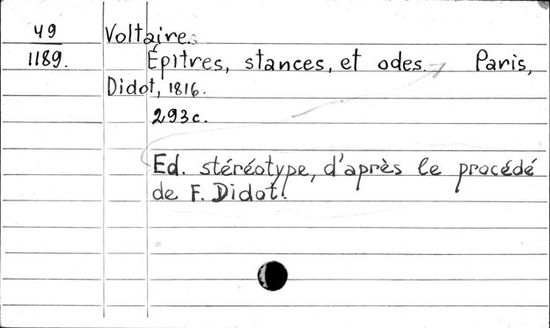 49 Voltaire.
1189. Épitres, stances, et odes. Paris,
Didot, 1816.
293c.
Ed. stéréotype, d'après le procédé
de F. Didot.